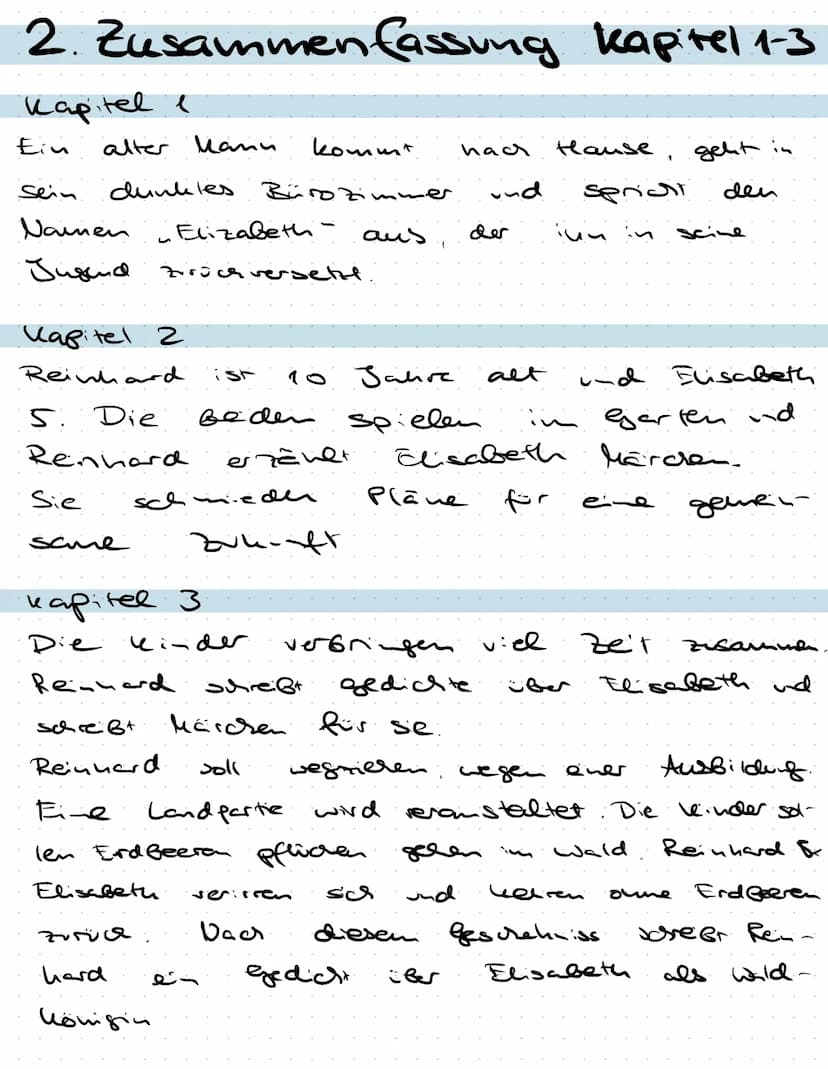 2. Zusammenfassung Kapitel 1-3
Kapitel 1
Ein alter Mann kommt nach Hause, geht in
sein dunkles Bürozimmer und spricht den
Namen „Elizabeth" aus, der ihn in seine
Jugend zurückversetzt.
Kapitel 2
Reinhard ist 10 Jahre alt und Elisabeth
5. Die Beiden spielen im Garten und
Reinhard erzählt Elisabeth Märchen.
Sie schmieden Pläne für eine gemein-
same Zukunft
Kapitel 3
Die Kinder verbringen viel Zeit zusammen.
Reinhard schreibt gedichte über Elisabeth und
schreibt Märchen für sie.
Reinhard soll wegziehen, wegen einer Ausbildung.
Eine Landpartie wird veranstaltet. Die Kinder sol-
len Erdbeeren pflücken gehen im Wald. Reinhard &
Elisabeth verirren sich und kehren ohne Erdbeeren
zurück. Nach diesem Geschehniss schreibt Rein-
hard ein Gedicht über Elisabeth als Wald-
königin